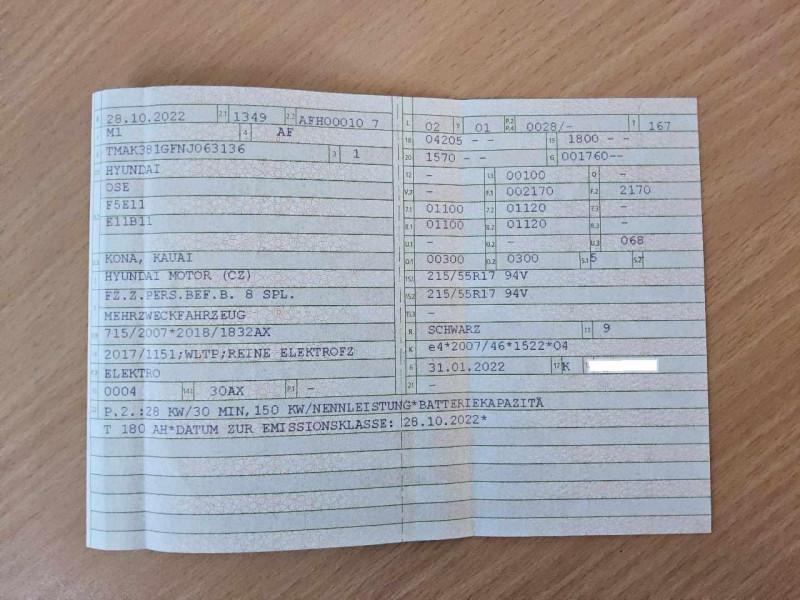 B 28.10.2022 2.1 1349 2.2 AFH00010 7
M1 4 AF
TMAK381GFNJ063136 3 1
HYUNDAI
OSE
F5E11
E11B11
KONA, KAUAI
HYUNDAI MOTOR (CZ)
FZ.Z.PERS.BEF.B. 8 SPL.
MEHRZWECKFAHRZEUG
715/2007*2018/1832AX
2017/1151;WLTP;REINE ELEKTROFZ
ELEKTRO
0004 14.1 30AX P.1 -
L 02 9 01 P.2 P.4 0028/- T 167
18 04205 - - 19 1800 - -
20 1570 - - G 001760--
12 - 13 00100 Q -
V.7 - F.1 002170 F.2 2170
7.1 01100 7.2 01120 7.3 -
8.1 01100 8.2 01120 8.3 -
U.1 - U.2 - U.3 068
O.1 00300 O.2 0300 S.1 5 S.2
15.1 215/55R17 94V
15.2 215/55R17 94V
15.3 -
R SCHWARZ 11 9
K e4*2007/46*1522*04
6 31.01.2022 17 K
21 -
22 P.2.:28 KW/30 MIN,150 KW/NENNLEISTUNG*BATTERIEKAPAZITÄ
T 180 AH*DATUM ZUR EMISSIONSKLASSE: 28.10.2022*